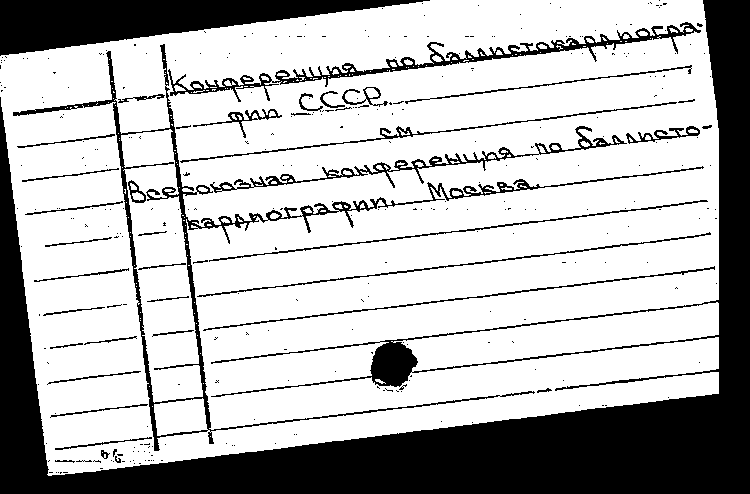 Конференция по баллистокардиогра-
фии СССР.
см.
Всесоюзная конференция по баллисто-
кардиографии. Москва.